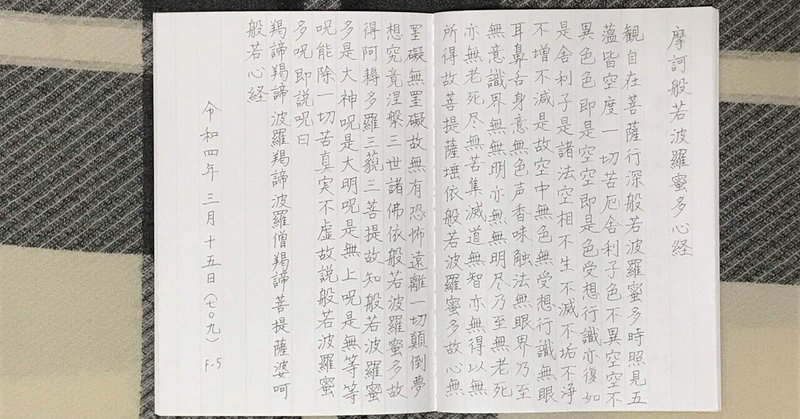 摩訶般若波羅蜜多心経
観自在菩薩行深般若波羅蜜多時照見五
薀皆空度一切苦厄舎利子色不異空空不
異色色即是空空即是色受想行識亦復如
是舎利子是諸法空相不生不滅不垢不浄
不増不減是故空中無色無受想行識無眼
耳鼻舌身意無色声香味触法無眼界乃至
無意識界無無明亦無無明尽乃至無老死
亦無老死尽無苦集滅道無智亦無得以無
所得故菩提薩埵依般若波羅蜜多故心無
罣礙無罣礙故無有恐怖遠離一切顛倒夢
想究竟涅槃三世諸佛依般若波羅蜜多故
得阿耨多羅三藐三菩提故知般若波羅蜜
多是大神呪是大明呪是無上呪是無等等
呪能除一切苦真実不虚故説般若波羅蜜
多呪即説呪曰
羯諦羯諦波羅羯諦波羅僧羯諦菩提薩婆呵
般若心経
令和四年 三月十五日(七〇九) F-5